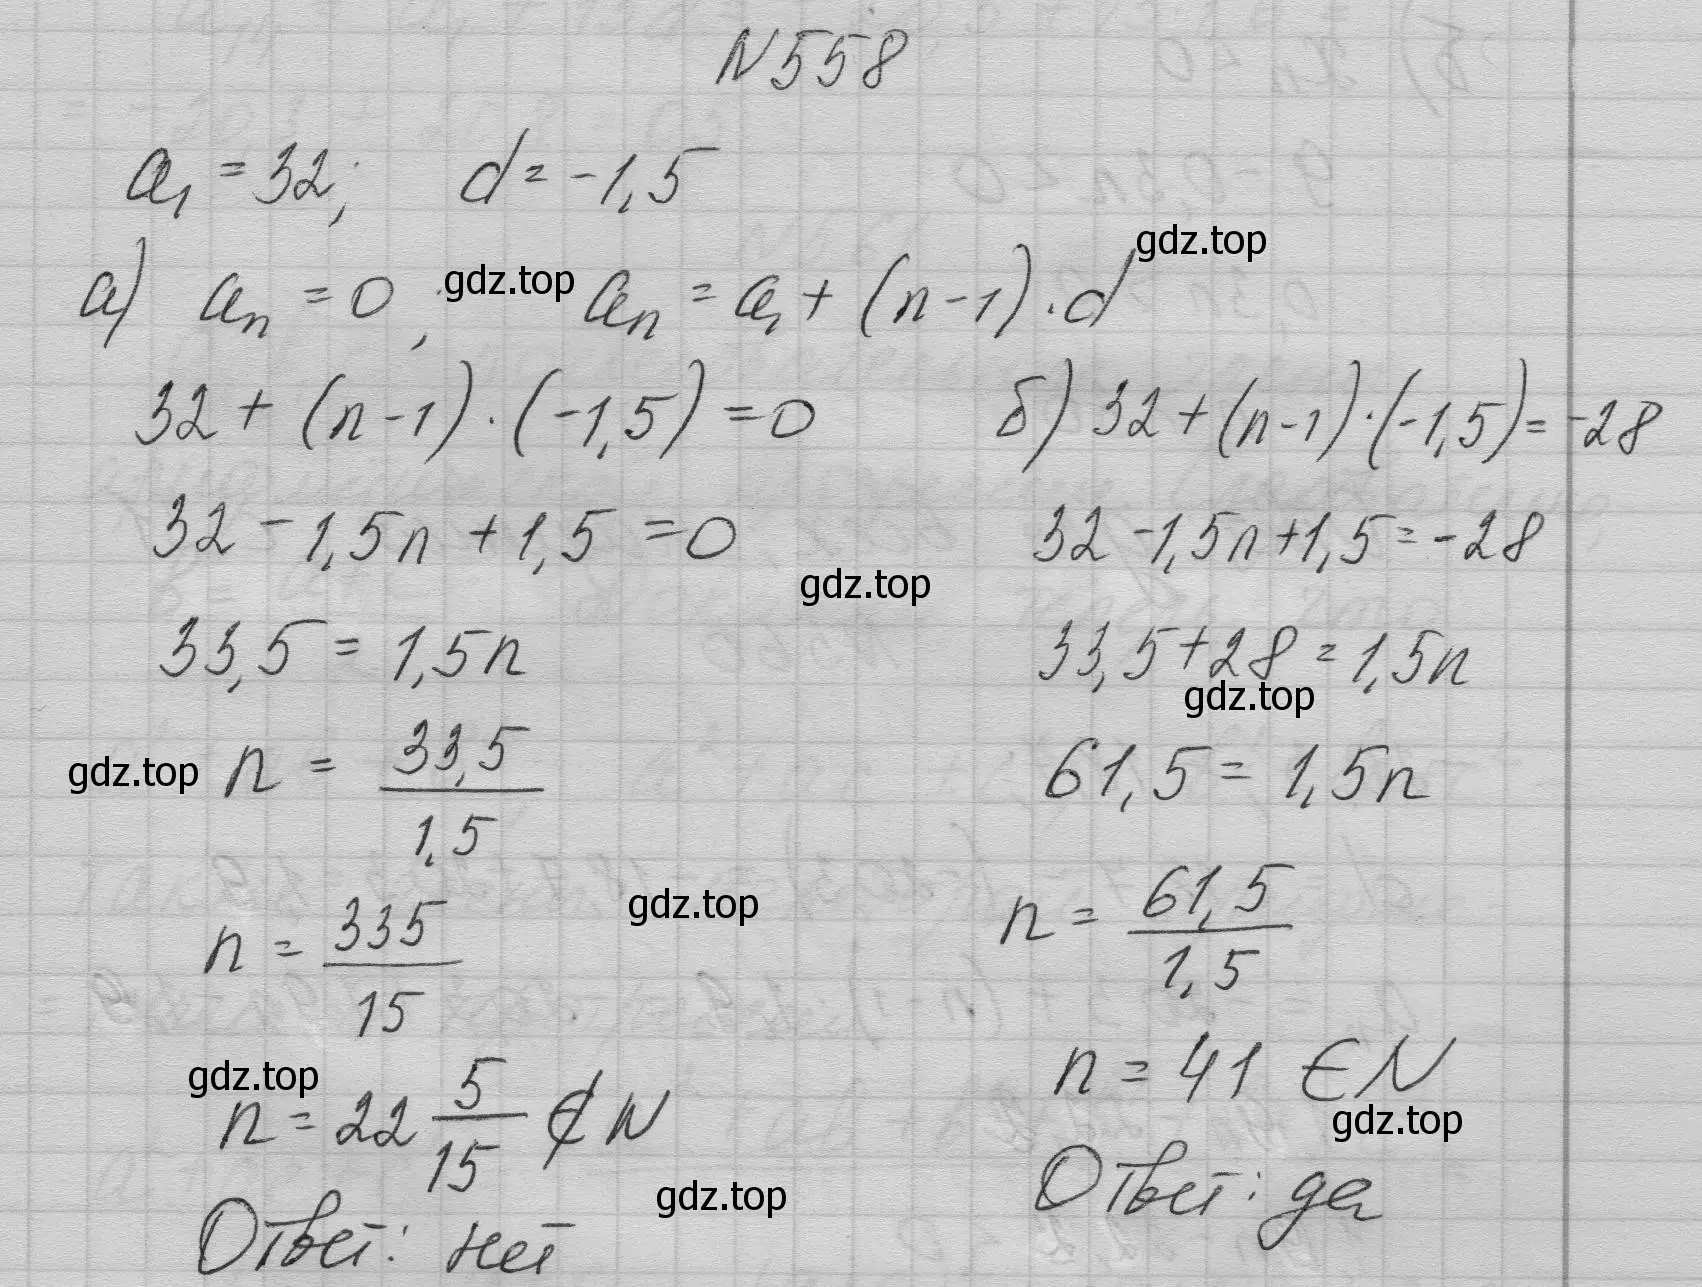 N 558
a₁ = 32; d = -1,5
а) aₙ = 0, aₙ = a₁ + (n-1)·d
32 + (n-1)·(-1,5) = 0
32 - 1,5n + 1,5 = 0
33,5 = 1,5n
n = 33,5/1,5
n = 335/15
n = 22 5/15 ∉ N
Ответ: нет
б) 32 + (n-1)·(-1,5) = -28
32 - 1,5n + 1,5 = -28
33,5 + 28 = 1,5n
61,5 = 1,5n
n = 61,5/1,5
n = 41 ∈ N
Ответ: да
gdz.top
gdz.top
gdz.top
gdz.top
gdz.top
gdz.top
gdz.top
gdz.top
gdz.top